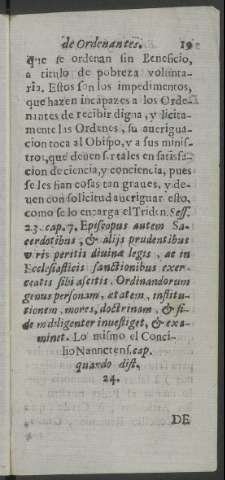 de Ordenantes. 19
que se ordenan sin Beneficio,
a titulo de pobreza volunta-
ria. Estos son los impedimentos,
que hazen incapazes a los Orde-
nantes de recibir digna, y licita-
mente las Ordenes, su aueriguа-
cion toca al Obispo, y a sus minis-
tros, que deuen s. reales en satisfa-
cion de ciencia, y conciencia, pues
se les fian cosas tan graues, y de-
uen con solicitud aueriguar esto,
como se lo encarga el Triden. Sess.
23. cap. 7. Episcopus autem Sa-
cerdotibus, & alijs prudentibus
viris peritis diuinæ legis, ac in
Ecclesiasticis sanctionibus exer-
citatis sibi ascitis. Ordinandorum
genus personam, ætatem, institu-
tionem, mores, doctrinam, & fi-
de m diligenter inuestiget, & exa-
minet. Lo mismo el Conci-
lio Nannetens. cap.
quando dist.
24.
DE